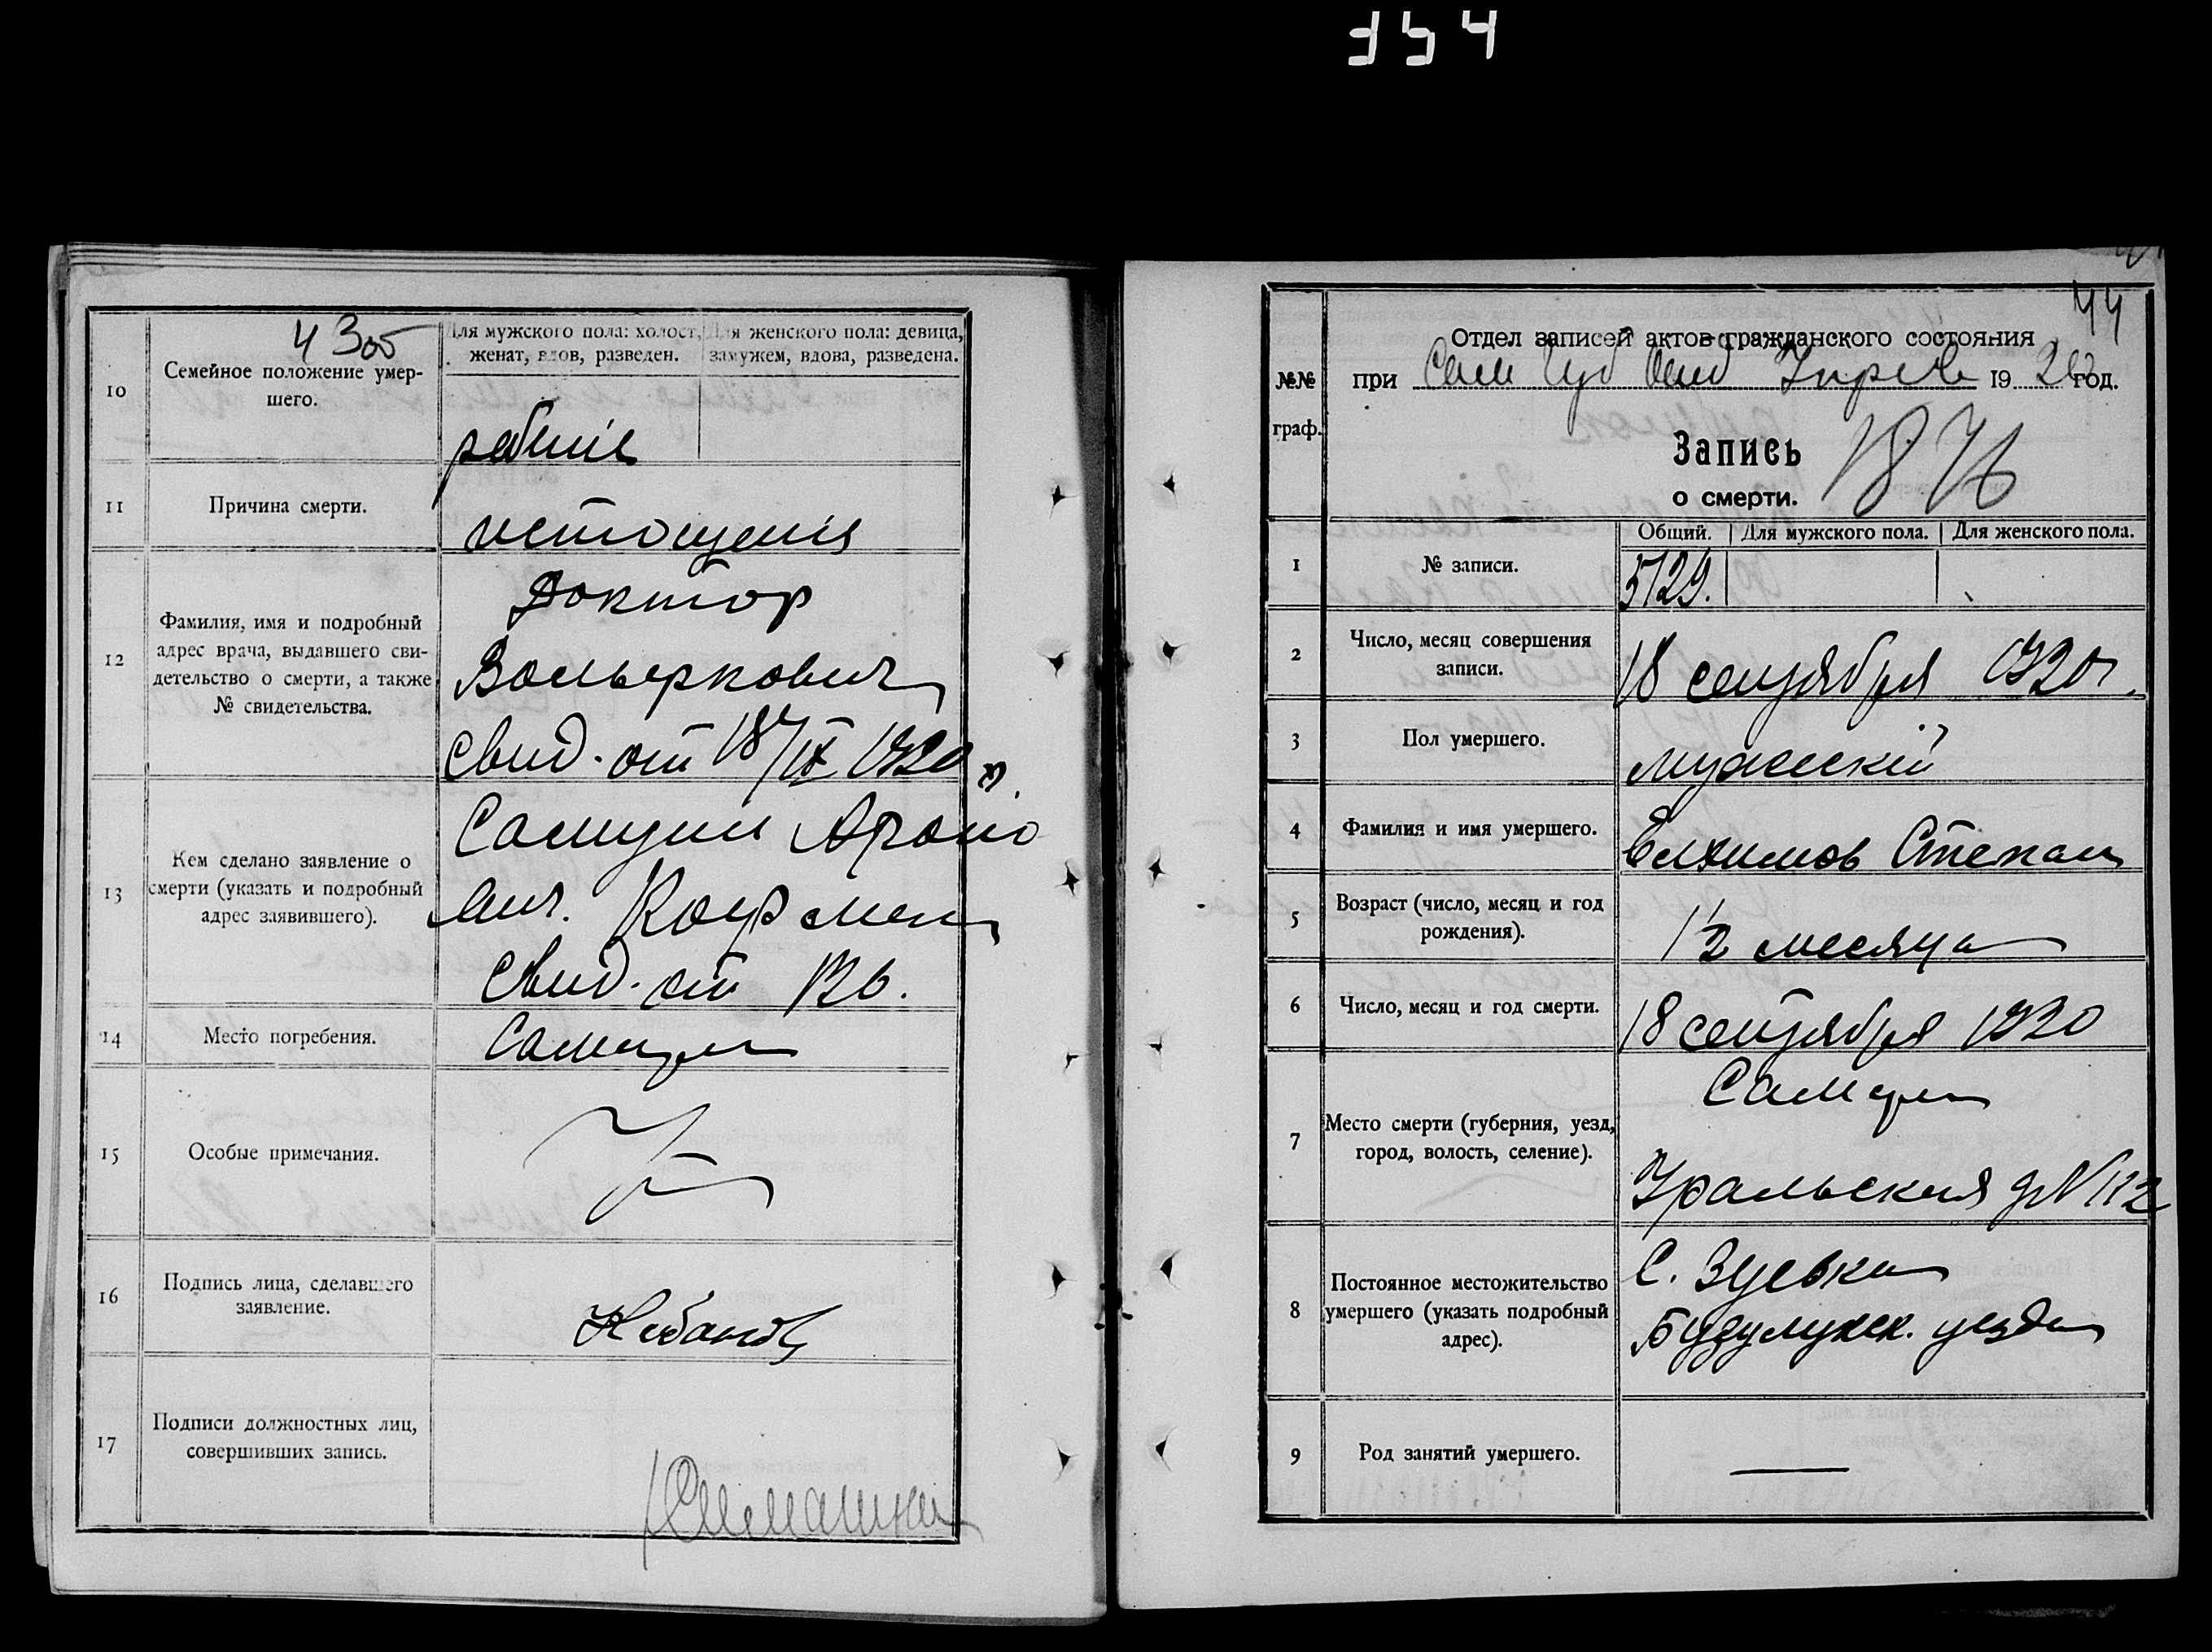 4300
10
Семейное положение умер-
шего.
Для мужского пола: холост,
женат, вдов, разведен.
Для женского пола: девица,
замужем, вдова, разведена.
11
Причина смерти.
истощения
12
Фамилия, имя и подробный
адрес врача, выдавшего сви-
детельство о смерти, а также
№ свидетельства.
Доктор
Вольеркович
Свид. от 18/IX 1920 г.
13
Кем сделано заявление о
смерти (указать и подробный
адрес заявившего).
Кауфман
свид. от
14
Место погребения.
Самара
15
Особые примечания.
16
Подпись лица, сделавшего
заявление.
17
Подписи должностных лиц,
совершивших запись.
44
№№
граф.
Отдел записей актов гражданского состояния
при Сам Губ 1920 год.
Запись
о смерти.
1876
1
№ записи.
Общий.
Для мужского пола.
Для женского пола.
5129.
2
Число, месяц совершения
записи.
18 сентября 1920 г.
3
Пол умершего.
мужскій
4
Фамилия и имя умершего.
Степан
5
Возраст (число, месяц и год
рождения).
1 1/2 месяца
6
Число, месяц и год смерти.
18 сентября 1920
7
Место смерти (губерния, уезд,
город, волость, селение).
Самара
Уральская д № 112
8
Постоянное местожительство
умершего (указать подробный
адрес).
С. Зуевка
Бузулукск. уезда
9
Род занятий умершего.
—